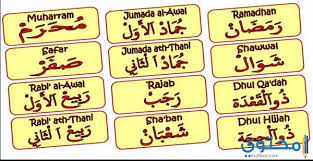 Muharram
مُحَرَّمْ
Safar
صَفَرْ
Rabi' al-Awal
رَبِيْعُ الْأَوَّلْ
Rabi' ath-Thani
رَبِيْعُ الثَّانِي
Jumada al-Awal
جُمَادُ الْأَوَّلْ
Jumada ath-Thani
جُمَادُ الثَّانِي
Rajab
رَجَبْ
Sha'ban
شَعْبَانْ
Ramadhan
رَمَضَانْ
Shawwal
شَوَّالْ
Dhul Qa'dah
ذُوالْقَعْدَة
Dhul Hijjah
ذُوالْحِجَّة
محتوى